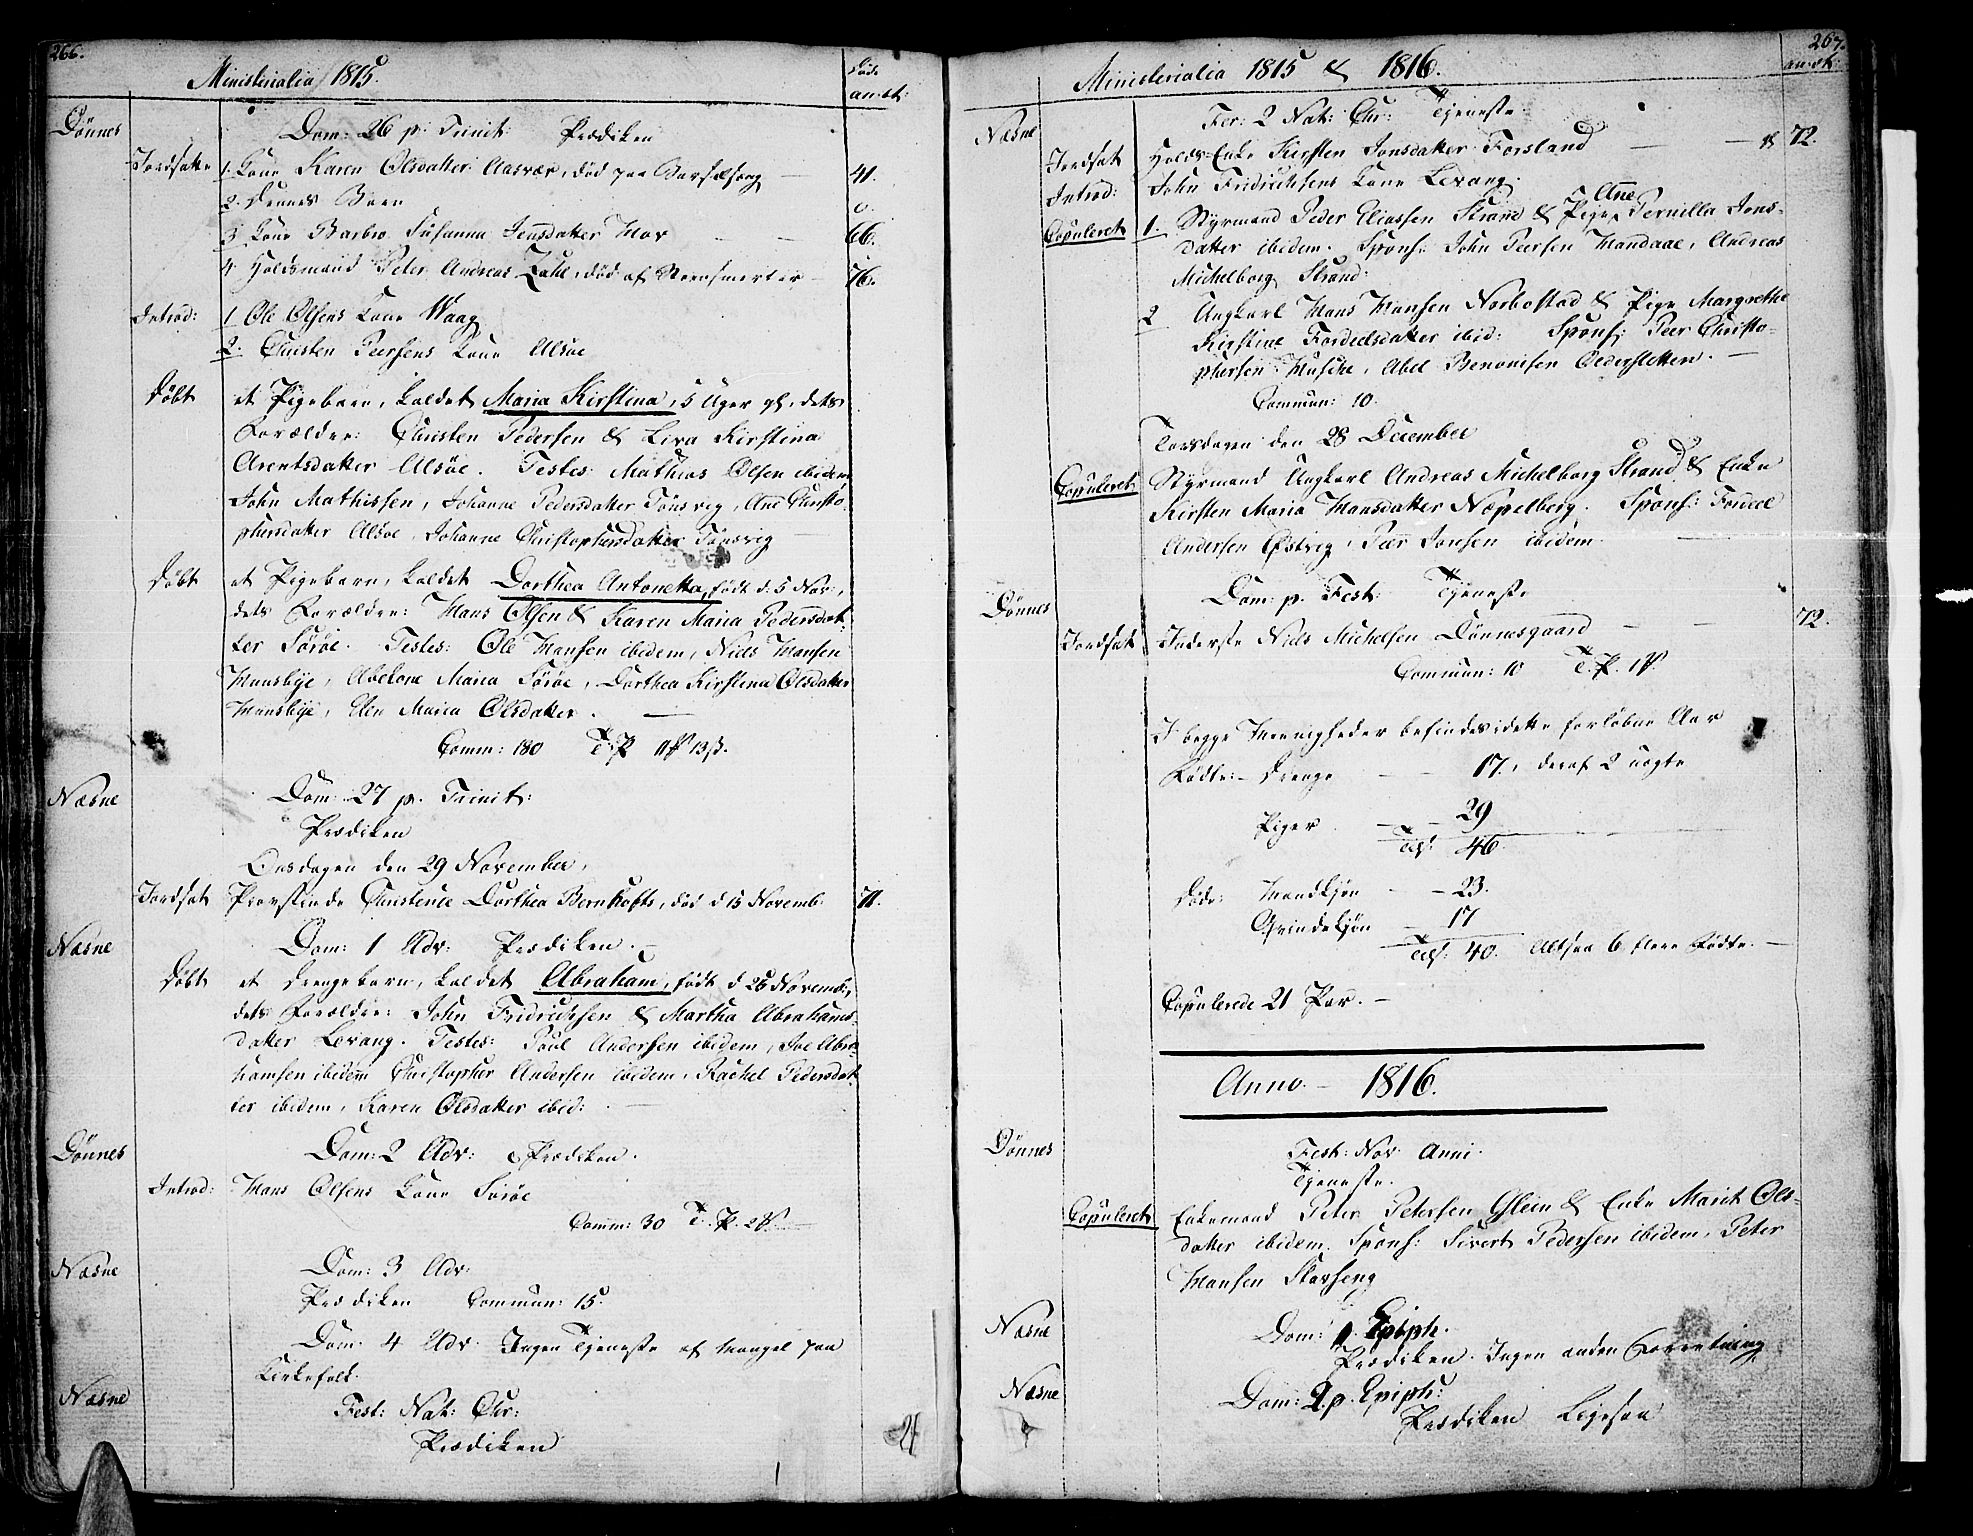 266.
Ministerialia 1815.
an: æt:
Dønnes
Dom: 26 p: Trinit: Prædiken
Jordfæstet 1. Kone Karen Olsdatter Aasvær, død paa Barselseng — 41.
2. Dennes Barn 0.
3 Kone Barbro Susanna Jensdatter Hov — — 66.
4. Holdsmand Peter Andreas Zahl, død af — 76.
Introd: 1 Ole Olsens Kone Waag
2. Christen Peersens Kone Alsøe
Døbt et Pigebarn, kaldet Maria Kirstina, 5 Uger gl, dets
Forældre: Christen Pedersen & Liva Kirstina
Arentsdatter Alsøe. Testes: Mathias Olsen ibidem
John Mathissen, Johanne Pedersdatter Tønsvig, Ane Christo-
phersdatter Alsøe, Johanne Christophersdatter Tønsvig —
Døbt et Pigebarn, kaldet Dorthea Antonetta, født d: 5 Nov:,
dets Forældre: Hans Olsen & Karen Maria Pedersdat-
ter Sørøe. Testes: Ole Hansen ibidem, Niels Hansen
Huusbye, Abelone Maria Sørøe, Dorthea Kirstina Olsdatter
Huusbye, Elen Maria Olsdatter. —
Comm: 180 T. P. 11 13 ß.
Næsne
Dom: 27 p. Trinit:
Prædiken
Onsdagen den 29 November,
Jordfæstet Provstinde Christence Dorthea Bernhofts, død d 15 Novemb: 71.
Næsne
Dom: 1 Adv: Prædiken.
Døbt et Drengebarn, kaldet Abraham, født d 26 Novemb:,
dets Forældre: John Fridrichsen & Martha Abrahams-
datter Levang. Testes: Poul Andersen ibidem, Joe Abra-
hamsen ibidem Christopher Andersen ibidem, Rachel Pedersdat-
ter ibidem, Karen Olsdatter ibid: —
Dønnes
Dom: 2 Adv: Prædiken.
Introd: Hans Olsens Kone Sørøe
Comm: 30 T. P. 2
Næsne
Dom: 3 Adv:
Prædiken Commun: 15.
Dom: 4 Adv: Ingen Tjeneste af Mangel paa
Kirkefolk.
Næsne
Fest: Nat: Chr:
Prædiken
267.
an: æt:
Ministerialia 1815 & 1816.
Næsne
Fer: 2 Nat: Chr: Tjeneste.
Jordfæstet Holds-Enke Kirsten Jonsdatter Forsland — — 72.
Introd: John Fridrichsens Kone Levang.
Copuleret 1. Styrmand Peder Eliassen Strand & Pige Ane Pernilla Jons-
datter ibidem. Spons: John Peersen Handaae, Andreas
Michelborg Strand.
2 Ungkarl Hans Hansen Norbostad & Pige Margrethe
Kirstine Fordeelsdatter ibid: Spons: Peer Christo-
phersen Husebye, Abel Benonisen Olderskletten. —
Commun: 10.
Torsdagen den 28 December
Copuleret: Styrmand Ungkarl Andreas Michelborg Strand & Enke
Kirsten Maria Hansdatter Næpelberg. Spons: Fordeel
Andersen Østvig, Peer Jonsen ibidem.
Dønnes
Dom: p. Fest: Tjeneste
Jordfæstet Inderste Niels Michelsen Dønnesgaard — — 72.
Commun: 10 T. P. 1
I begge Menigheder befindes i dette forløbne Aar
Fødte: Drenge — — 17., deraf 2 uægte
Piger — — 29
Tils: 46.
Døde: Mandkjøn — — 23.
Qvindekjøn — 17
Tils: 40. Altsaa 6 flere Fødte. —
Copulerede 21 Par. —
Anno — 1816.
Dønnes
Fest: Nov: Anni.
Tjeneste.
Copuleret Enkemand Peter Petersen Glein & Enke Marit Ols-
datter ibidem. Spons: Sivert Pedersen ibidem, Peter
Hansen Skarseng
Næsne
Dom: 1 p. Epiph.
Prædiken. Ingen anden Forretning
Næsne
Dom: 2 p. Epiph:
Prædiken Ligesaa